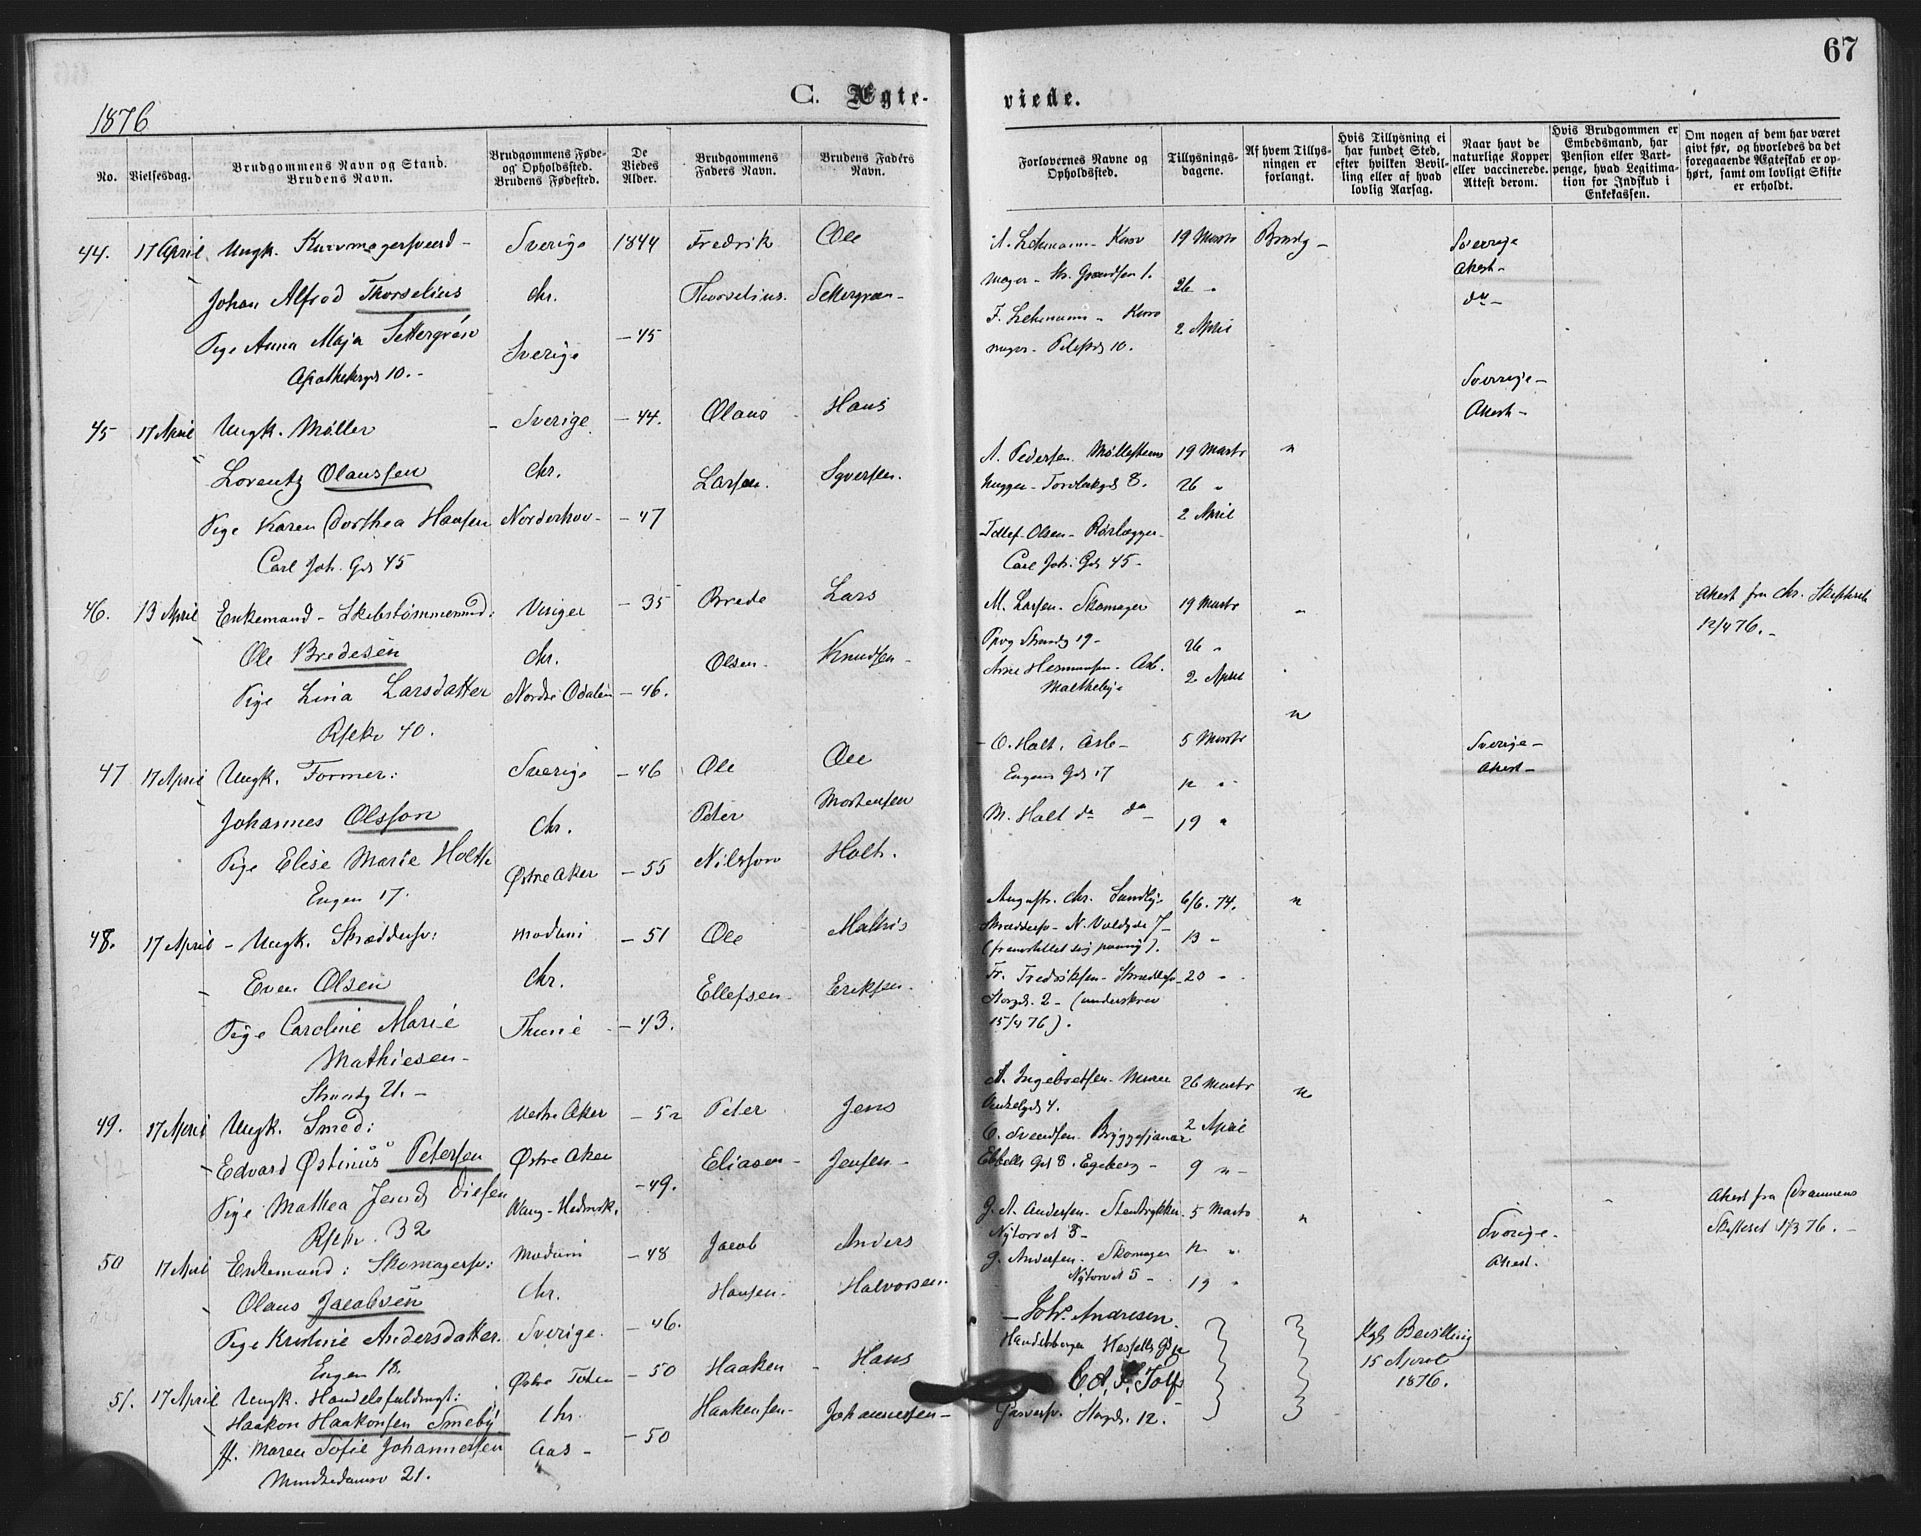 67
1876
C. Ægte-
viede.
No.
Vielsesdag.
Brudgommens Navn og Stand.
Brudens Navn.
Brudgommens Føde-
og Opholdssted.
Brudens Fødested.
De
Viedes
Alder.
Brudgommens
Faders Navn.
Brudens Faders
Navn.
Forlovernes Navne og
Opholdssted.
Tillysnings-
dagene.
Af hvem Tillys-
ningen er
forlangt.
Hvis Tillysning ei
har fundet Sted,
efter hvilken Bevil-
ling eller af hvad
lovlig Aarsag.
Naar havt de
naturlige Kopper
eller vaccinerede.
Attest derom.
Hvis Brudgommen er
Embedsmand, har
Pension eller Vart-
penge, hvad Legitima-
tion for Indskud i
Enkekassen.
Om nogen af dem har været
givt før, og hvorledes da det
foregaaende Ægteskab er op-
hørt, samt om lovligt Skifte
er erholdt.
44. 17 April Ungk. Kurvmagersvend - Sverige 1844 Fredrik Ole
Johan Alfred Thorselius Chr. Thorselius. Settergren-
Pige Anna Maja Settergren Sverige - 45
Apothekergd 10. -
A. Lehmann - Kurv 19 Marts Brudg -
mager - 26 "
F. Lehmann - Kurv 2 April
mager - Pilestd 10.
Sverrige
Attest-
do -
Sverrige-
Attest-
45 17 April Ungk. Møller - Sverige. - 44. Olaus Hans
Lorentz Olaussen Chr. Larsen. Syversen.
Pige Karen Dorthea Hansen Norderhov - - 47
Carl Joh. Gd 45
A. Pedersen. Møllestens 19 Marts "
hugger - 8. 26 "
2 April
Olsen - Rørlægger -
Carl Joh: Gd. 45 -
46. 13 April Enkemand - : - 35 Brede Lars
Ole Bredesen Chr. Olsen - Knudsen -
Pige Lina Larsdatter Nordre Odalen - 46.
40.
M. Larsen. Skomager 19 Marts "
19 - 26 "
Hermansen - Arb. 2 April
Attest fra Chr. Skifteret
12/4 76. -
47 17 April Ungk. Former: Sverige - 46 Ole Ole
Johannes Olsson Chr. Peter Mortensen
Pige Elise Marie Holth Østre Aker - 55 Nilsson Holt.
Engen 17.
O. Holt, Arb - 5 Marts "
Engens Gd 17 12 "
M. Holt do do 19 "
Sverige -
Attest -
48. 17 April - Ungk. Skræddersv: Modum - 51 Ole Mathis
Even Olsen Chr. Ellefsen - Eriksen.
Pige Caroline Marie - 43.
Mathiesen -
21. -
August. Chr. Sundby 6/6. 74. "
Skræddersv - N. Voldgde 7 - 13 -
Fr. Fredriksen - 20 "
Storgd. 2 - (underskrev
15/4 76).
49. 17 April Ungk. Smed: Vestre Aker - 52 Peter Jens
Edvard Østinus Petersen Østre Aker Eliasen - Jensen -
Pige Mathea Jensd Vang - Hedmark. - 49.
32
A. Ingebretsen - Murer 26 Marts "
4.
O. Svendsen - 2 April
Gd 8. Egeberg - 9 " -
50 17 April Enkemand: Skomagersv: Modum - 48 Jacob Anders
Olaus Jacobsen Chr. Hansen - Halvorsen.
Pige Kristine Andersdatter. Sverige. - 46.
Engen 18.
G. A. Andersen - Stentrykker. 5 Marts "
Nytorvet 3 -
G. Andersen - Skomager 12 "
Nytorvet 5 - 19 "
Sverige -
Attest.
Attest fra Drammens
Skifteret 1/3 76. -
51. 17 April Ungk. Handelsfuldmgt: Østre Toten - 50 Haaken - Hans
Haakon Haakonsen Smeby Chr. Haakensen - Johannessen -
Jf. Maren Sofie Johannessen Aas - - 50
Munkedamsv 21.
- Johs. Andresen.
C. A. F.
Storgd. 12.
Kgl Bevilling
15 April
1876.